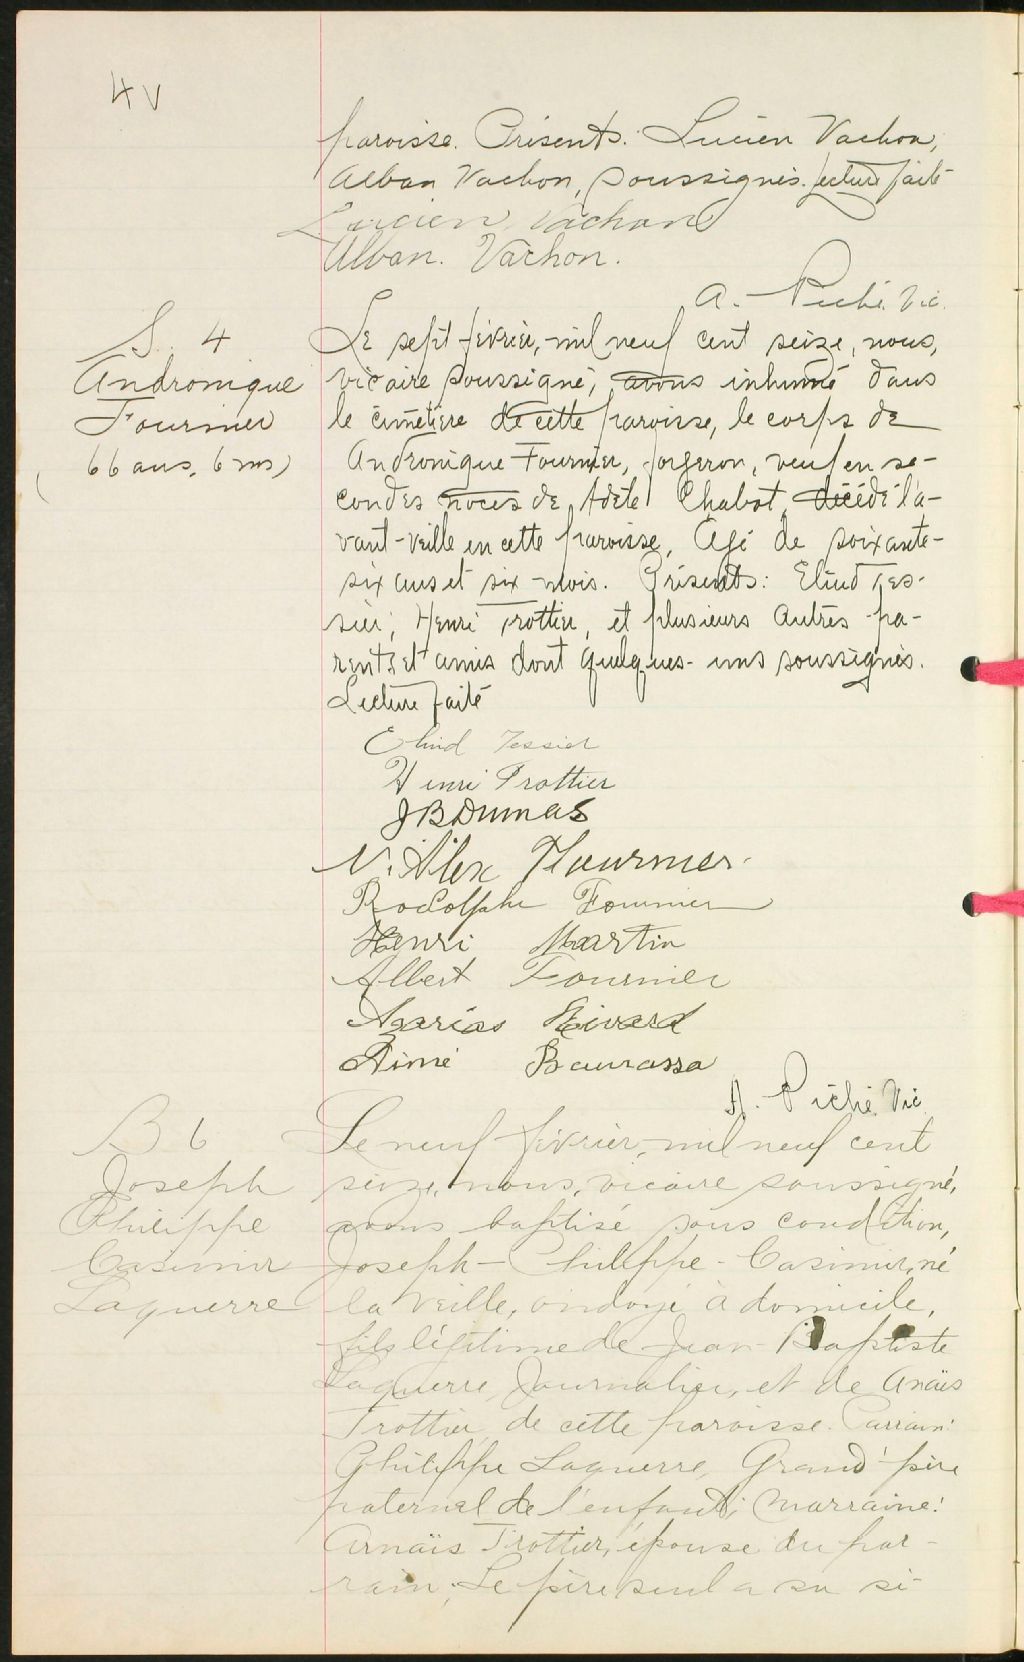 4v
paroisse. Présents: Lucien Vachon,
Alban Vachon, soussignés. Lecture faite
Lucien Vachon
Alban. Vachon.
A. Piché Vic.
S. 4
Andronique
Fournier
(66 ans, 6 ms)
Le sept février, mil neuf cent seize, nous,
vicaire soussigné, avons inhumé dans
le cimetière de cette paroisse, le corps de
Andronique Fournier, forgeron, veuf en se-
condes noces de Adèle Chabot, décédé l'a-
vant-veille en cette paroisse, âgé de soixante-
six ans et six mois. Présents: Eliud Tes-
sier, Henri Trottier, et plusieurs autres pa-
rents et amis dont quelques-uns soussignés.
Lecture faite
Eliud Tessier
Henri Trottier
J B Dumas
N. Alex Fournier
Rodolphe Fournier
Henri Martin
Albert Fournier
Azarias Rivard
Aimé Bourassa
A. Piché Vic
B 6
Joseph
Philippe
Casimir
Laguerre
Le neuf février, mil neuf cent
seize, nous, vicaire soussigné,
avons baptisé sous condition,
Joseph-Philippe-Casimir, né
la veille, ondoyé à domicile,
fils légitime de Jean-Baptiste
Laguerre, journalier, et de Anaïs
Trottier, de cette paroisse. Parrain:
Philippe Laguerre, Grand'père
paternel de l'enfant; marraine:
Arnaïs Trottier, épouse du par-
rain; Le père seul a su si-